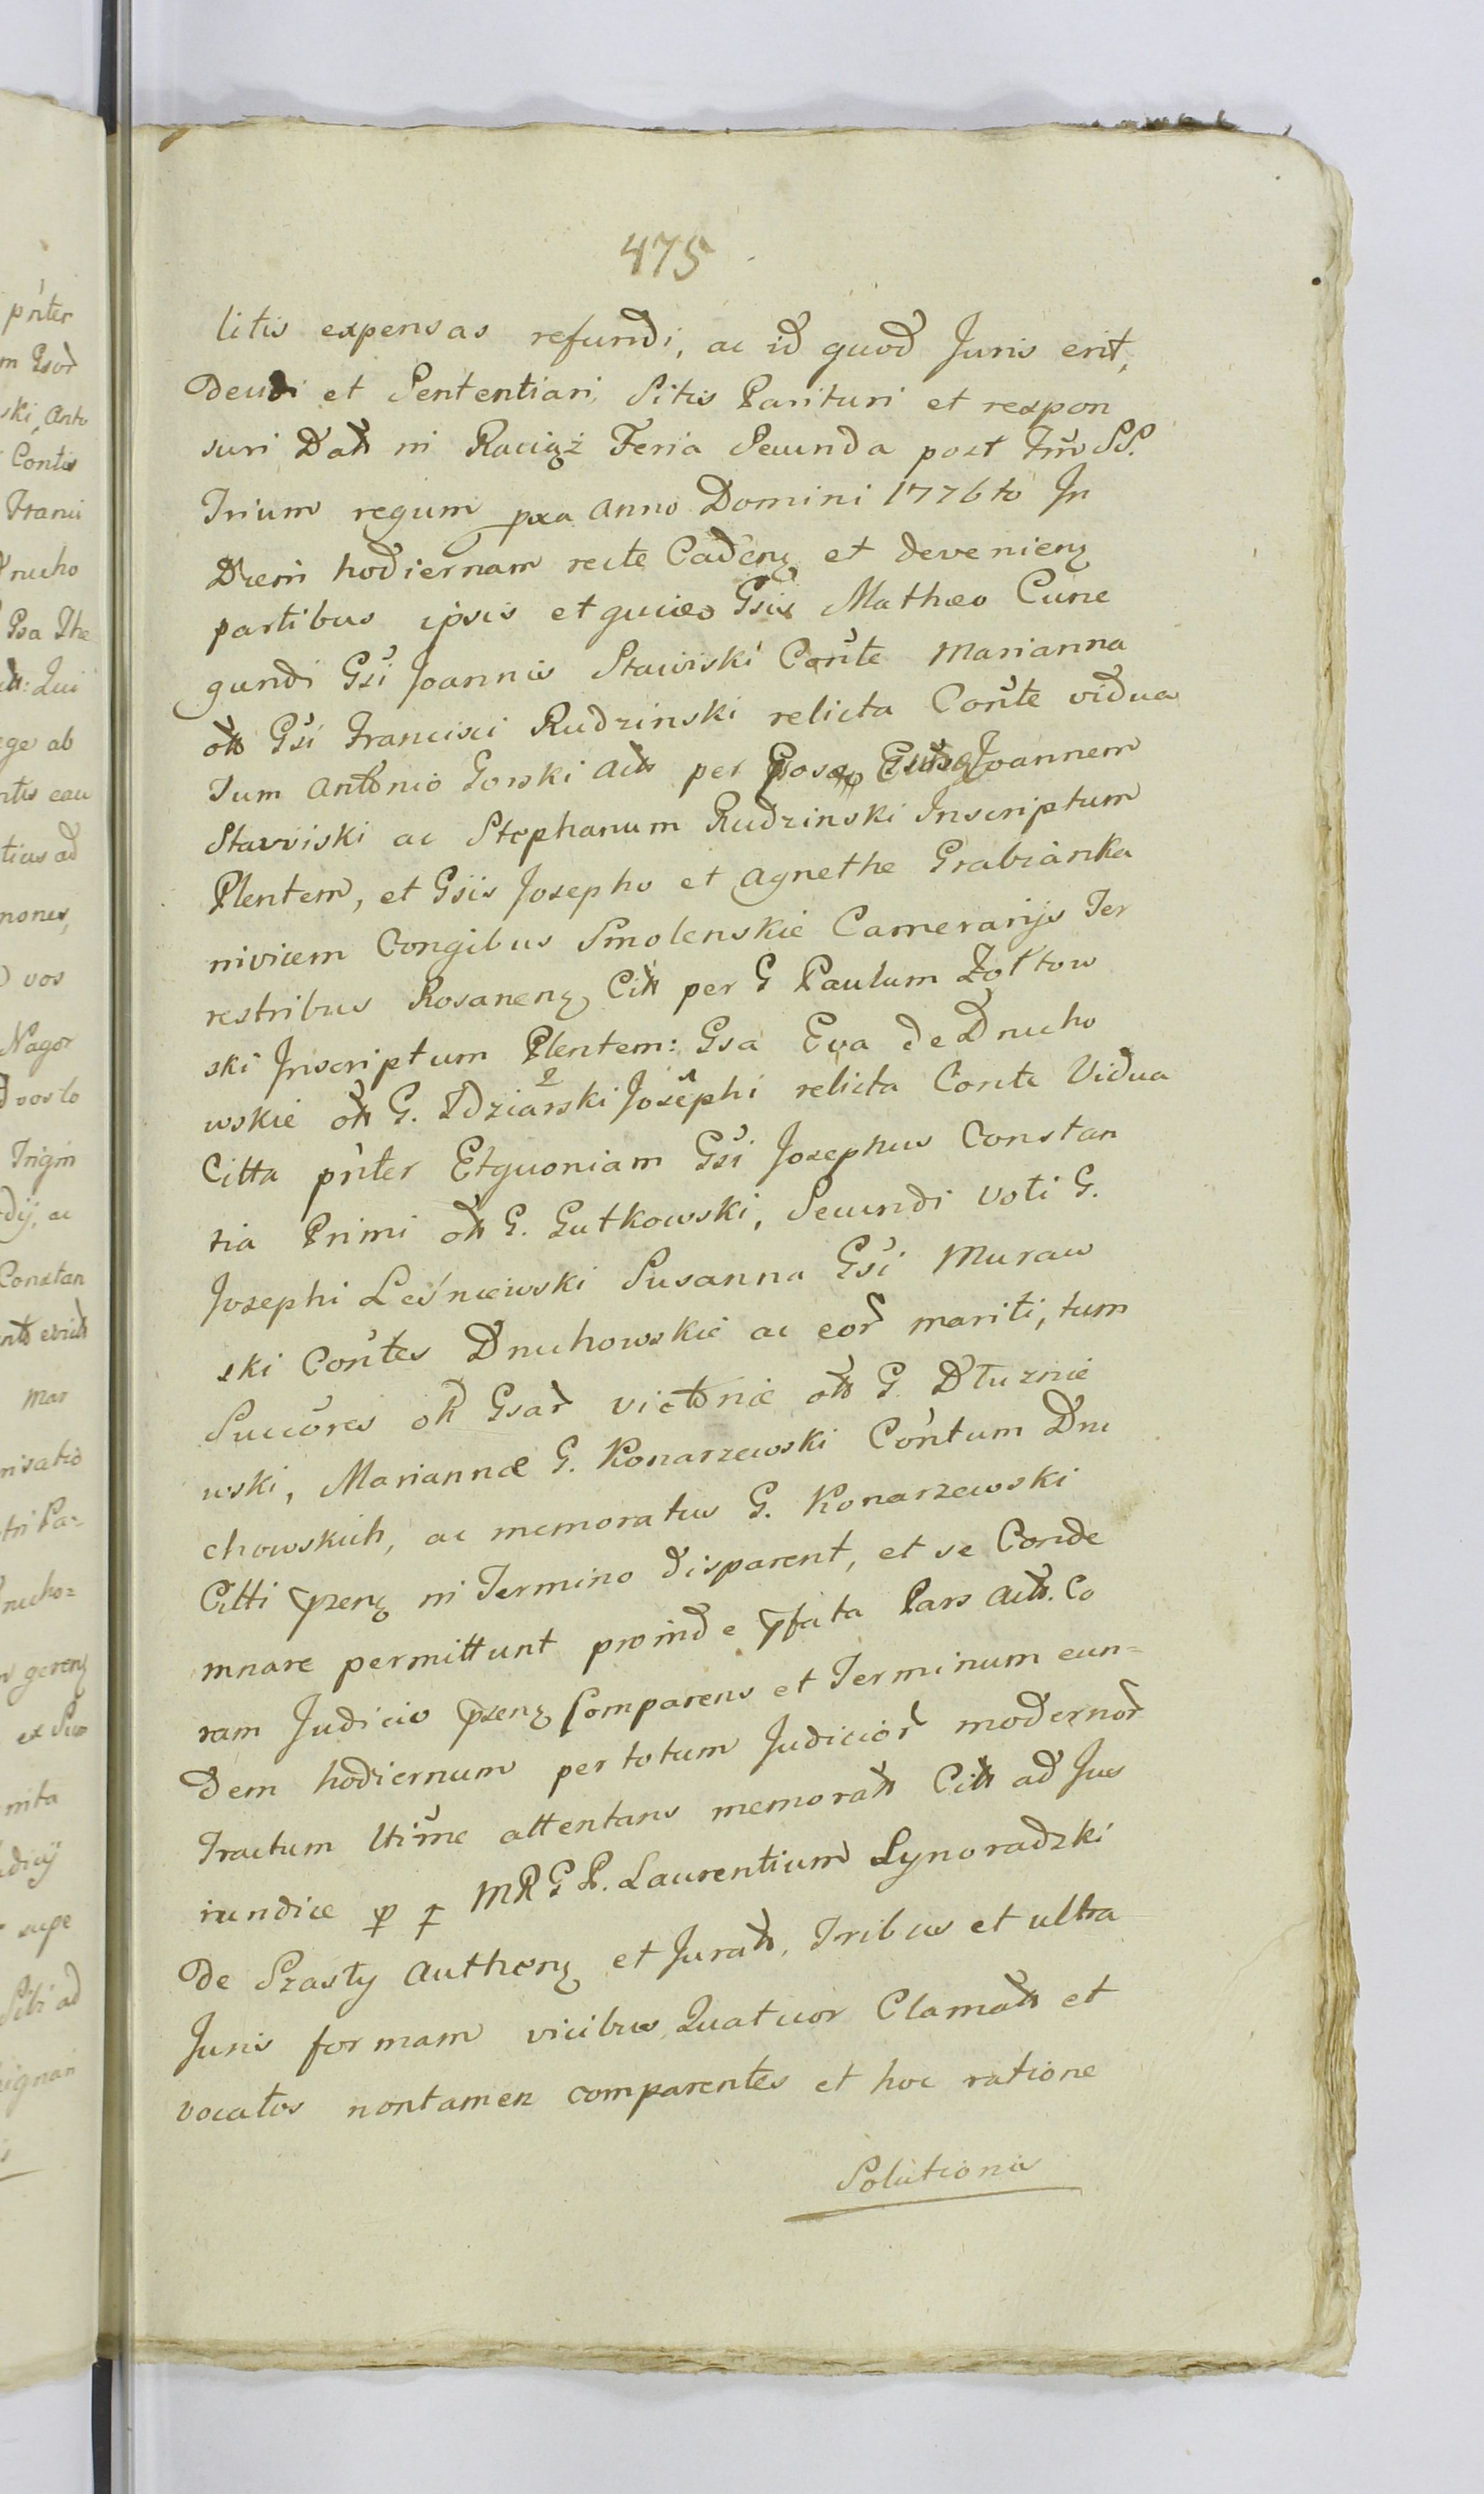 475
litis expensas refundi, ac id quod Juris erit,
Decidi et Sententiari, Sitis Parituri et respon
suri Datt in Raciąż Feria Secunda post Ftm SS.
Trium regum pxa Anno Domini 1776to In
Diem hodiernam recte Cadenʒ et devenienʒ
partibus ipsis et quidem Gsis Mathæo Cune
gundi Gsi Joannis Stawiski Conte Marianna
ott Gsi Francisci Rudzinski relicta Conte vidua
Tum Antonio Gorski Actt per Joannem
Stawiski ac Stephanum Rudzinski Inscriptum
Plentem, et Gsis Josepho et Agnethe Grabianka
invicem Congibus Smolenskie Camerarijs Ter
restribus Rosanenʒ Citt per G Paulum Zołtow
ski Inscriptum Plentem: Gsa Eva de Dnucho
wskie ott G. Zdziarski Josephi relicta Conte Vidua
Citta pnter Etquoniam Gsi Josephus Constan
tia Primi ott G. Gutkowski, Secundi voti G.
Josephi Leśniewski Susanna Gsi Muraw
ski Contes Dnuhowskie ac eor mariti, tum
Succores ott Gsar victoriæ ott G. Dłuznie
wski, Mariannæ G. Konarzewski Contum Dnu
chowskich, ac memoratus G. Konarzewski
Citti pzenʒ in Termino disparent, et se Conde
mnare permittunt proinde pfata Pars Actt. Co
ram Judicio pzenʒ Comparens et Terminum eun=
Dem hodiernum per totum Judicior modernor
Tractum ltime attentans memoratt Citt ad Jus
iundice p f MRGP. Laurentium Lynoradzki
De Szasty Authenʒ et Juratt, Tribus et ultra
Juris formam vicibus Quatuor Clamatt et
vocatos nontamen comparentes et hoc ratione
Solutionis